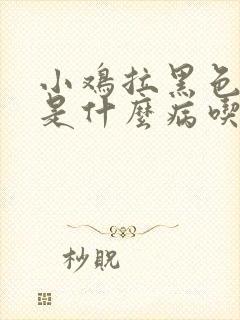 小鸡拉黑色
是什麼病喫
杪睨